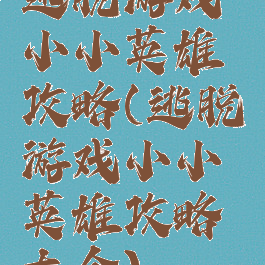 逃脱游戏
小小英雄
攻略(逃脱
游戏小小
英雄攻略
大全)